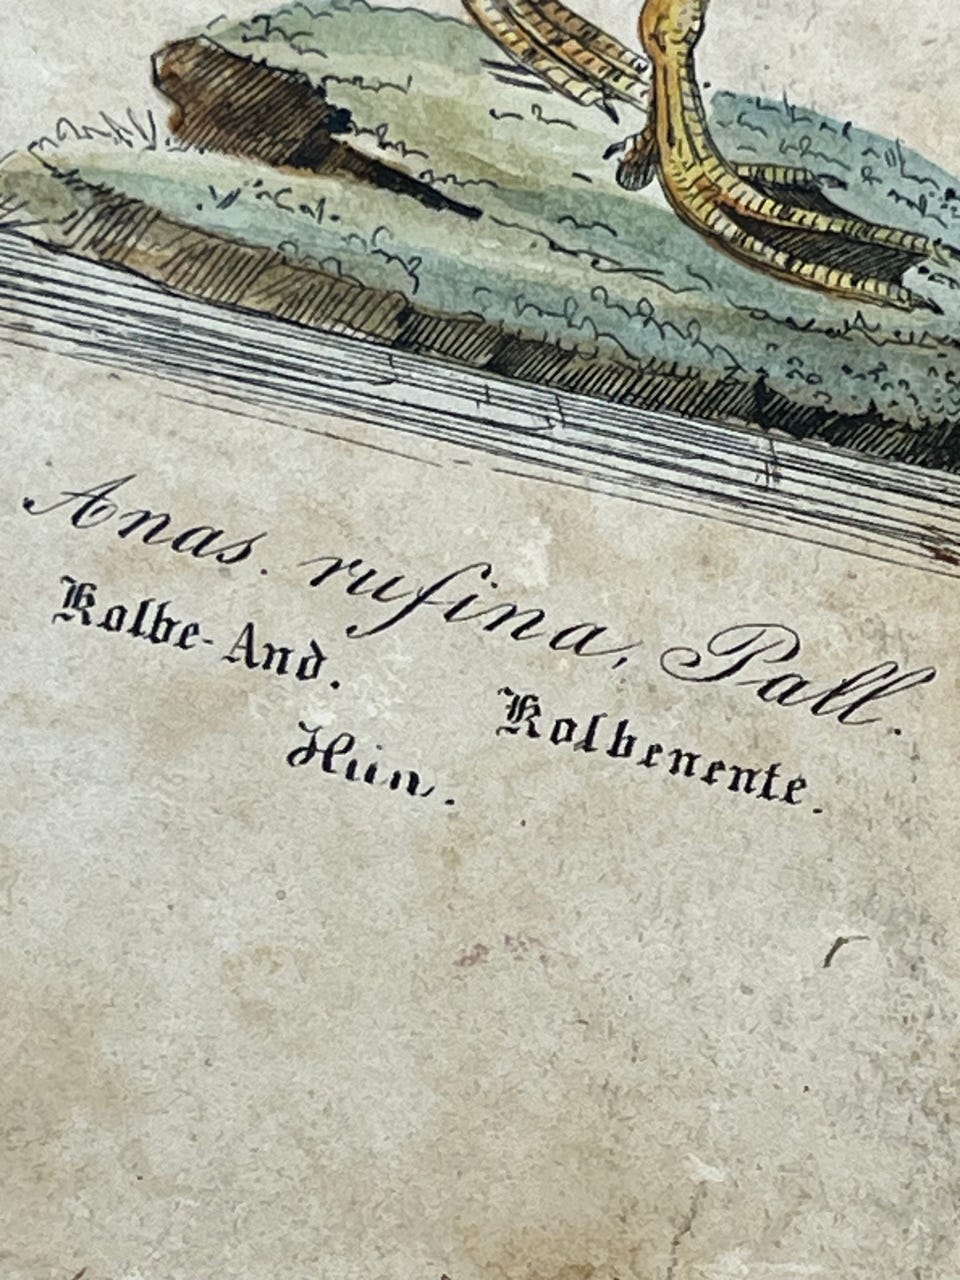 Anas. rufina, Pall.
Kolbe-And. Kolbenente.
Hun.